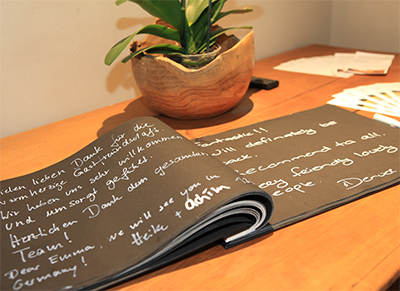 Vielen lieben Dank für die
warmherzige Gastfreundschaft.
Wir haben uns sehr willkommen
und umsorgt gefühlt.
Herzlichen Dank dem gesamten
Team!
Dear Emma, we will see you in
Germany!
Heike + Achim
Fantastic!!
will definately be
back.
Recommend to all.
Very friendly lovely
people.